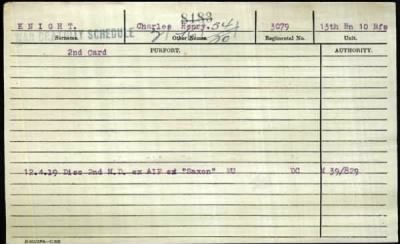 8183
KNIGHT. Charles Henry. 3079 13th Bn 10 Rfs
SCHEDULE
Surname. Other Names. Regimental No. Unit.
2nd Card PURPORT. AUTHORITY.
12.4.19 Disc 2nd M.D. ex AIF ex "Saxon" MU DC f 39/829